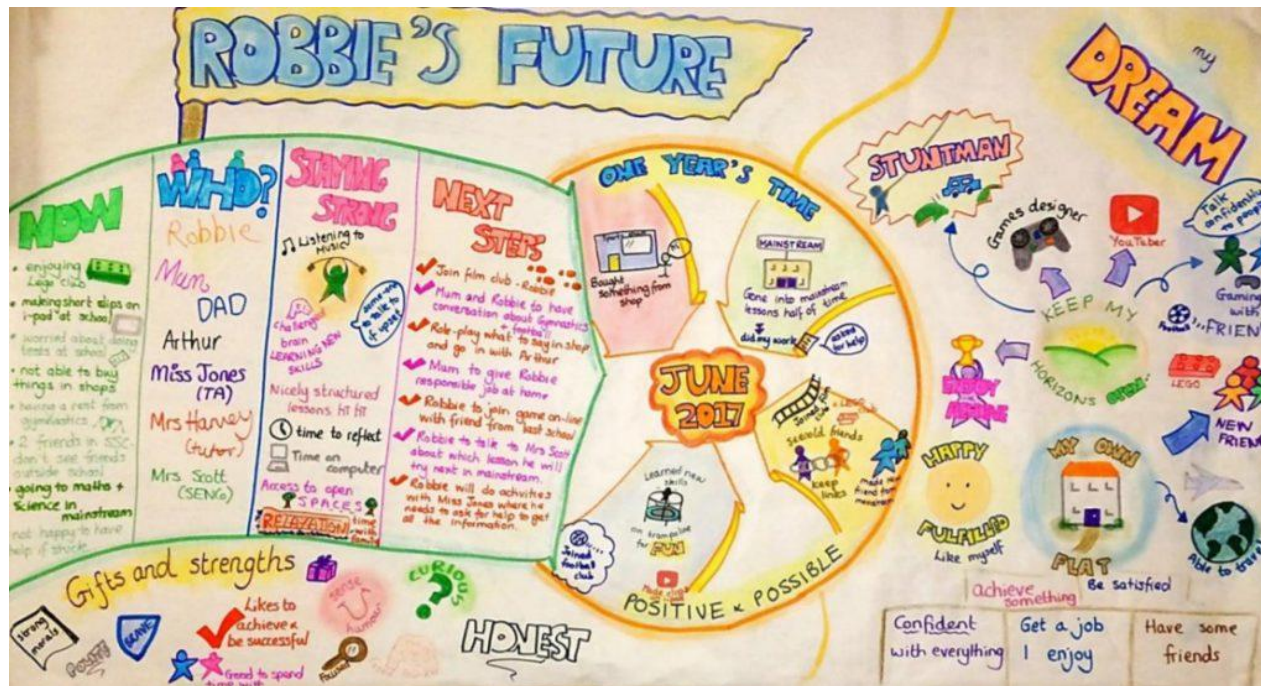 ROBBIE'S FUTURE
NOW
• enjoying
Lego club
• making short clips on
i-pad at school
• worried about doing
tests at school
• not able to buy
things in shops
• having a rest from
gymnastics
• 2 friends in SSC-
don't see friends
outside school
• going to maths +
Science in
mainstream
not happy to have
help if stuck
WHO?
Robbie
Mum
DAD
Arthur
Miss Jones
(TA)
Mrs Harvey
(tutor)
Mrs Scott
(SENCo)
STAYING
STRONG
Listening to
Music
some-one
to talk to
if upset
challenge
brain
LEARNING NEW
SKILLS
Nicely structured
lessons
time to reflect
Time on
computer
Access to open
SPACES
RELAXATION time
with
family
NEXT
STEPS
Join film club - Robbie
Mum and Robbie to have
conversation about Gymnastics
+ football
Role-play what to say in shop
and go in with Arthur
Mum to give Robbie
responsible job at home
Robbie to join game on-line
with friend from last school
Robbie to talk to Mrs Scott
about which lesson he will
try next in mainstream.
Robbie will do activities
with Miss Jones where he
needs to ask for help to get
all the information.
ONE YEAR'S TIME
Bought
something from
shop
MAINSTREAM
Gone into mainstream
lessons half of time
did my work
asked
for help
JUNE
2017
Joined film
club
friends
keep
links
made new
friend from
mainstream
Learned new
skills
on trampoline
for FUN
Made clips
Joined
football
club
POSITIVE & POSSIBLE
my
DREAM
STUNTMAN
Games designer
YouTuber
Talk
confidently
to people
Gaming
with
FRIEN
Football
KEEP MY
HORIZONS OPEN
ENJOY
LEGO
NEW
FRIEN
HAPPY
FULFILLED
Like myself
MY OWN
FLAT
Able to travel
achieve
something
Be satisfied
Confident
with everything
Get a job
I enjoy
Have some
friends
Gifts and strengths
strong
morals
POLITE
BRAVE
Likes to
achieve &
be successful
Good to spend
time with
sense
humour
Focused
CURIOUS
HONEST